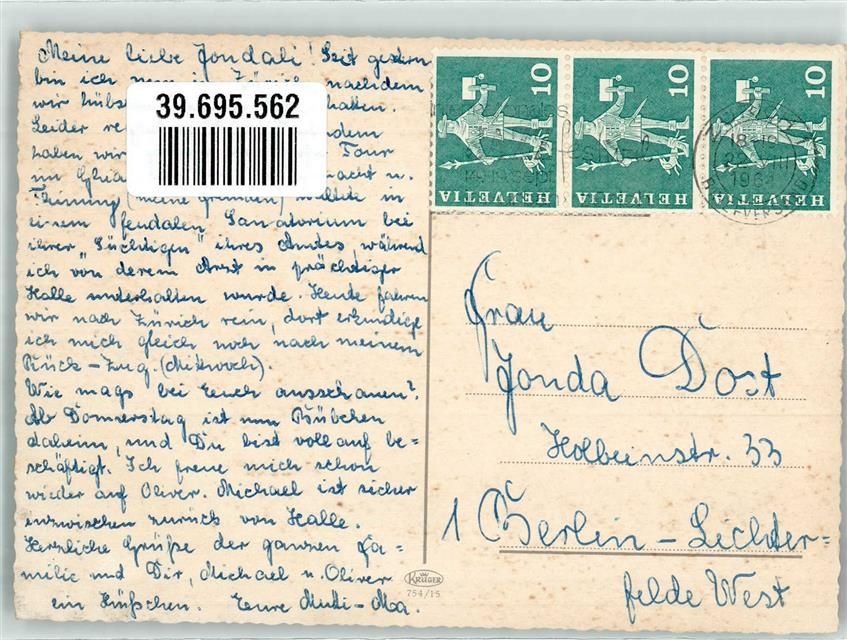 Meine liebe Jondali! Seit gestern
bin ich nun in Zürich, nachdem
wir hübs
Leider
haben wir Tour
im u.
Trinung (meine
einem feudalen Sanatorium bei
ihrer "Süchtigen" ihres Amtes während
ich von derem Arzt in prächtiger
Halle unterhalten wurde. Heute fahren
wir nach Zürich rein, dort erkundige
ich mich gleich noch nach meinem
Rück-Zug. (Mittwoch).
Wie mags bei Euch ausschauen?
Ab Donnerstag ist nun Bübchen
daheim, und Du bist vollauf be=
schäftigt. Ich freue mich schon
wieder auf Oliver. Michael ist sicher
inzwischen zurück von Halle.
Herzliche Grüße der ganzen Fa=
milie und Dir, Michael u. Oliver
ein Küßchen. Eure Mutti-Ma.
39.695.562
10
HELVETIA
10
HELVETIA
10
HELVETIA
Frau
Jonda Dost
Holbeinstr. 33
1 Berlin-Lichter=
felde West
KRÜGER
754/15